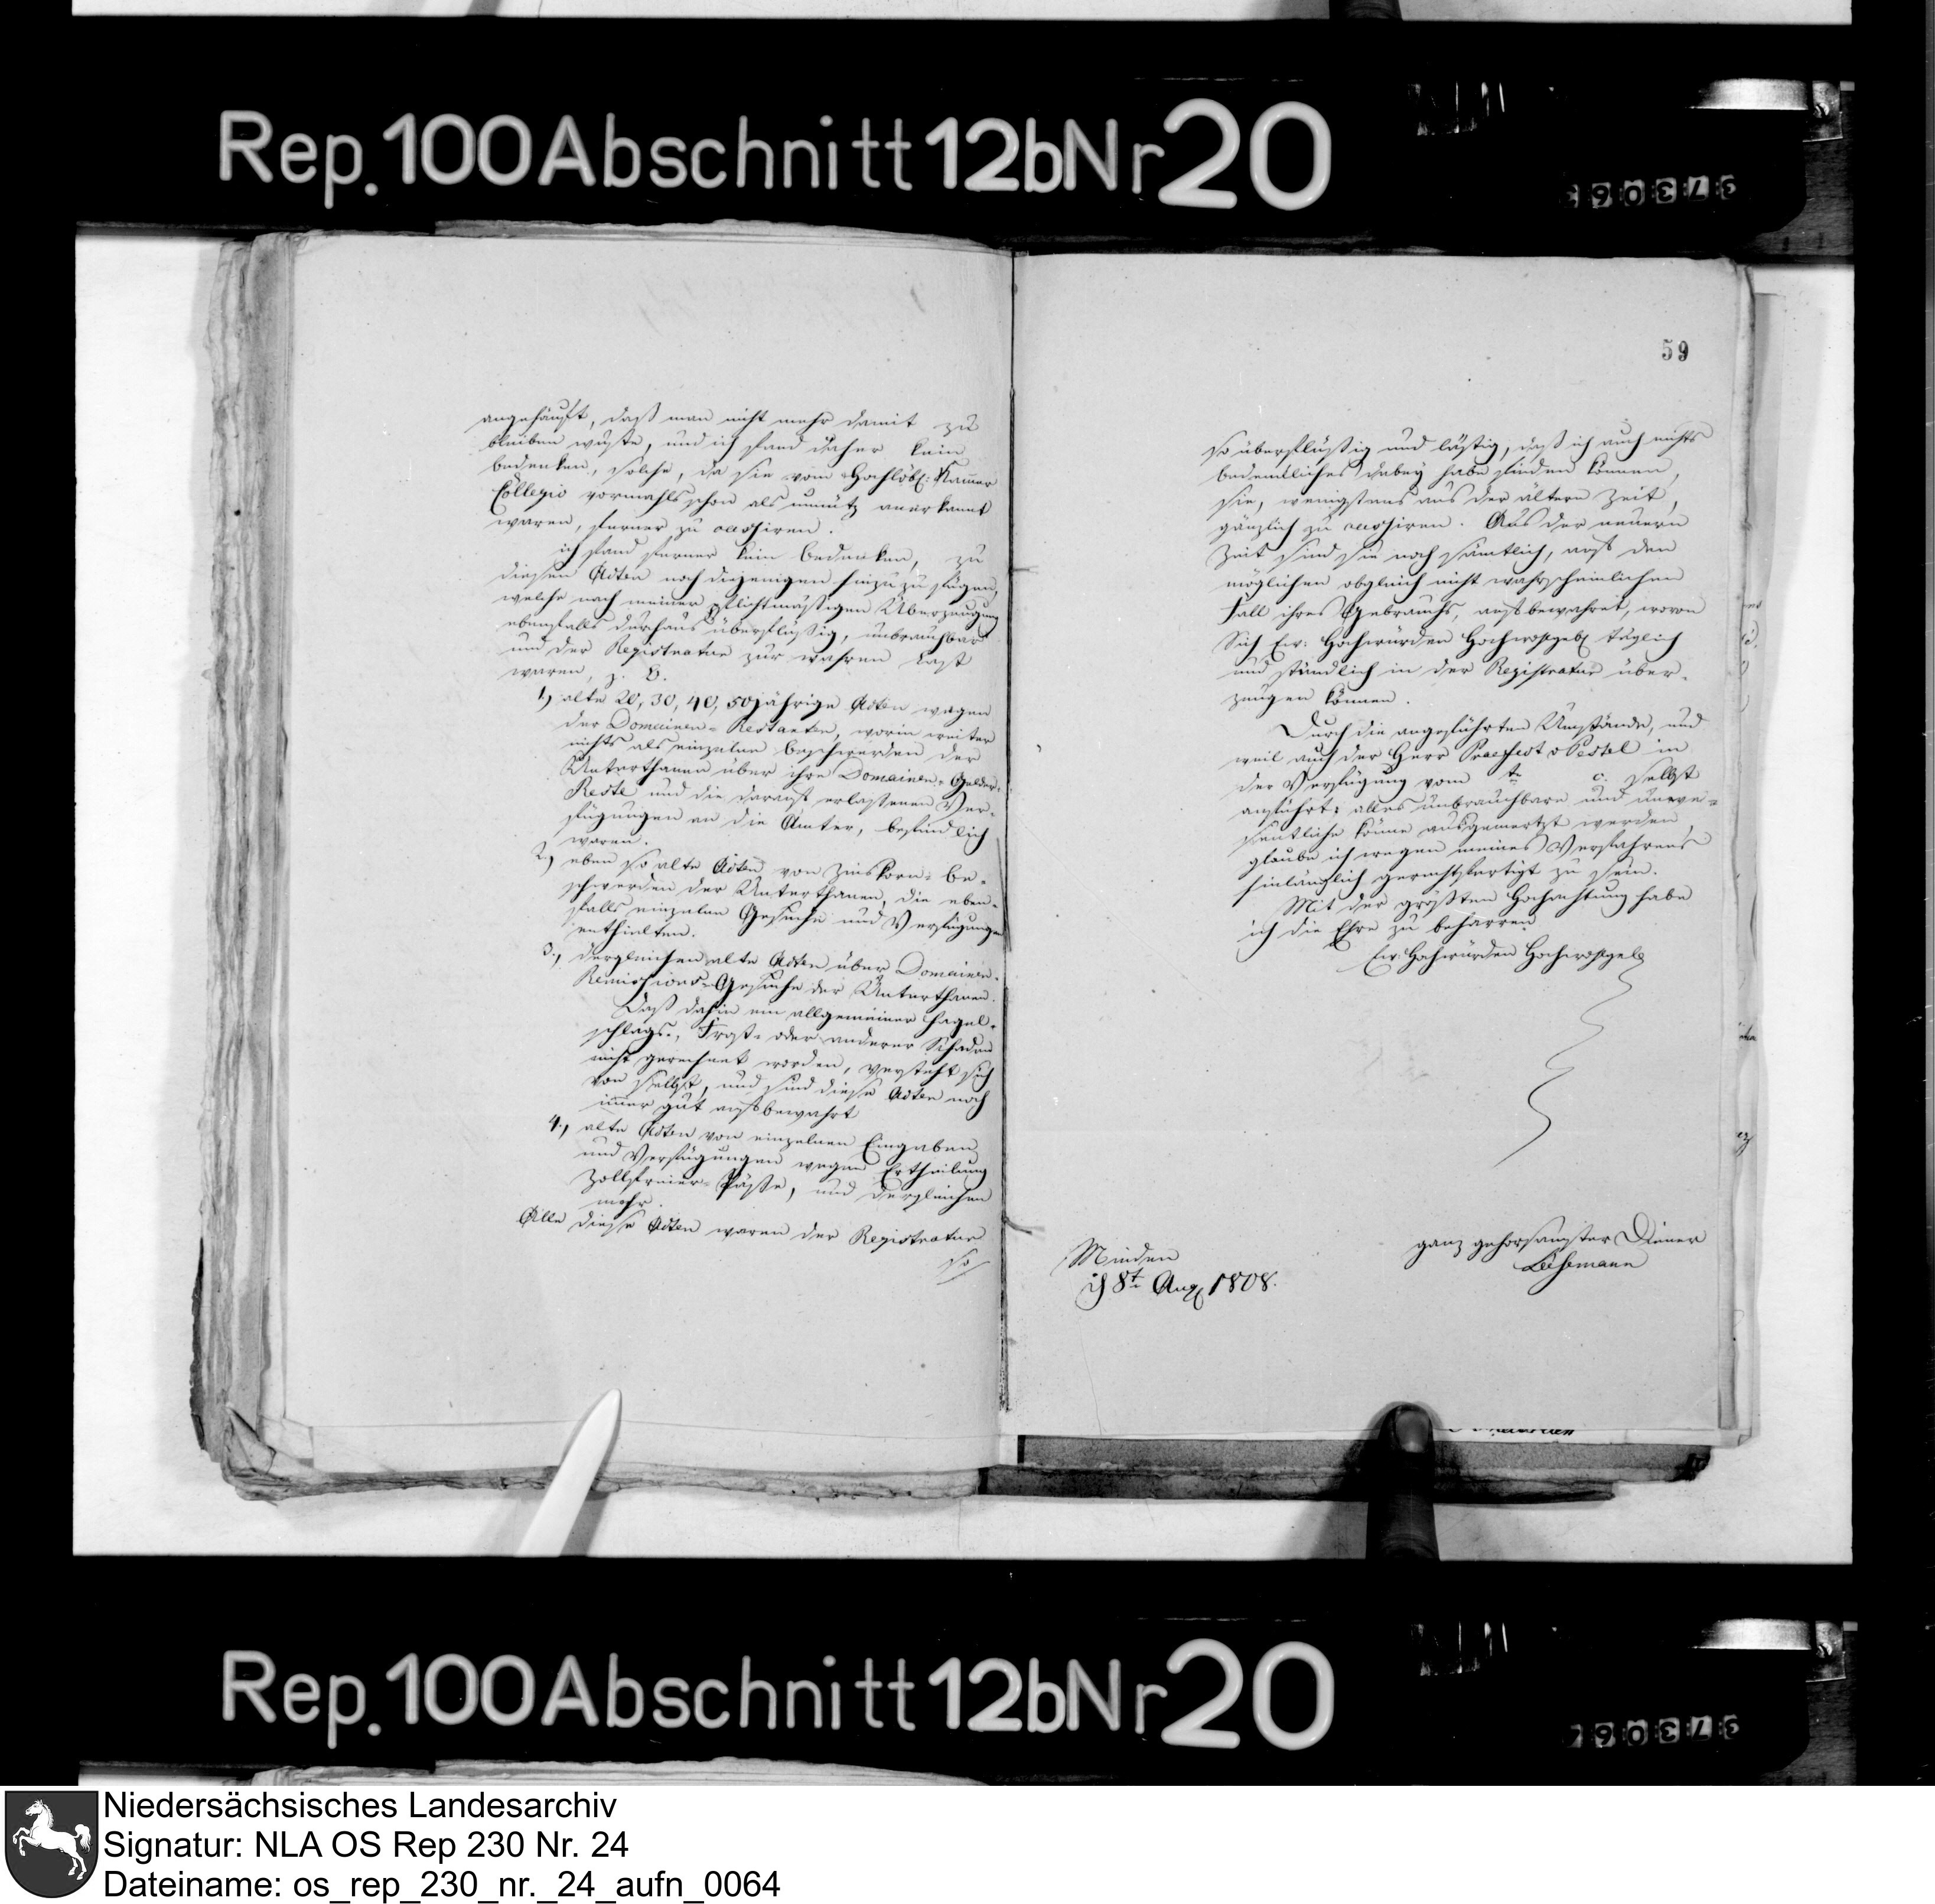 Rep. 100 Abschnitt 12b Nr 20
373063
angehäuft, daß man nicht mehr damit zu
bleiben wußte, und ich fand daher kein
bedenken, solche, da sie vom Hochlöbl: Kammer
Collegio vormahls schon als unnütz anerkannt
waren, ferner zu cassiren.
ich fand ferner kein bedenken, zu
diesen Acten noch diejenigen hinzuzufügen,
welche nach meiner pflichtmäßigen Überzeugung
ebenfalls durchaus überflüßig, unbrauchbar
und der Registratur zur wahren Last
waren, z. B.
1.) alte 20, 30, 40, 50jährige Acten wegen
der Domainen-Restanten, worin weiter
nichts als einzelne beschwerden der
Unterthanen über ihre Domainen-Gelder-
Reste und die darauf erlaßenen Ver-
fügungen an die Ämter, befindlich
waren.
2.) eben so alte Acten von Zinskorn-be-
schwerden der Unterthanen, die eben-
falls einzelne Gesuche und Verfügungen
enthielten.
3.) dergleichen alte Acten über Domainen-
Remissions-Gesuche der Unterthanen.
Daß dahin ein allgemeiner Hagel-
schlags-, Frost- oder anderer Schaden
nicht gerechnet worden, versteht sich
von selbst, und sind diese Acten noch
immer gut aufbewahrt
4.) alte Acten von einzelnen Eingaben
und Verfügungen wegen Ertheilung
Zollfreier-Päße, und dergleichen
mehr.
Alle diese Acten waren der Registratur
so
59
so überflüßig und lästig, daß ich auch nichts
bedenkliches dabey habe finden können,
sie, wenigstens aus der ältern Zeit,
gänzlich zu cassiren. Aus der neuern
Zeit sind sie noch sämtlich, auf den
möglichen obgleich nicht wahrscheinlichen
Fall ihres Gebrauchs, aufbewahret, wovon
Sich Ew: Hochwürden Hochwohlgeb täglich
und stündlich in der Registratur über-
zeugen können.
Durch die angeführten Umstände, und
weil auch der Herr Praefect v Pestel in
der Verfügung vom t c. selbst
anführt: alles unbrauchbare und unwe-
sentliche könne ausgemertzt werden,
glaube ich wegen meines Verfahrens
hinlänglich gerechtfertigt zu sein.
Mit der größten Hochachtung habe
ich die Ehre zu beharren
Ew: Hochwürden Hochwohlgeb
ganz gehorsamster Diener
Minden
8t Aug 1808.
Rep. 100 Abschnitt 12b Nr 20
Niedersächsisches Landesarchiv
Signatur: NLA OS Rep 230 Nr. 24
Dateiname: os_rep_230_nr._24_aufn_0064